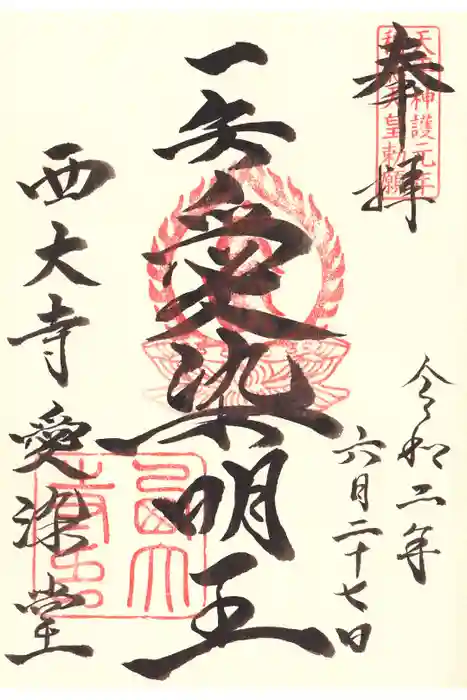 奉拝
天平神護元年
天皇勅願
令和二年
六月二十七日
一矢愛染明王
西大寺 愛染堂
西大
寺印